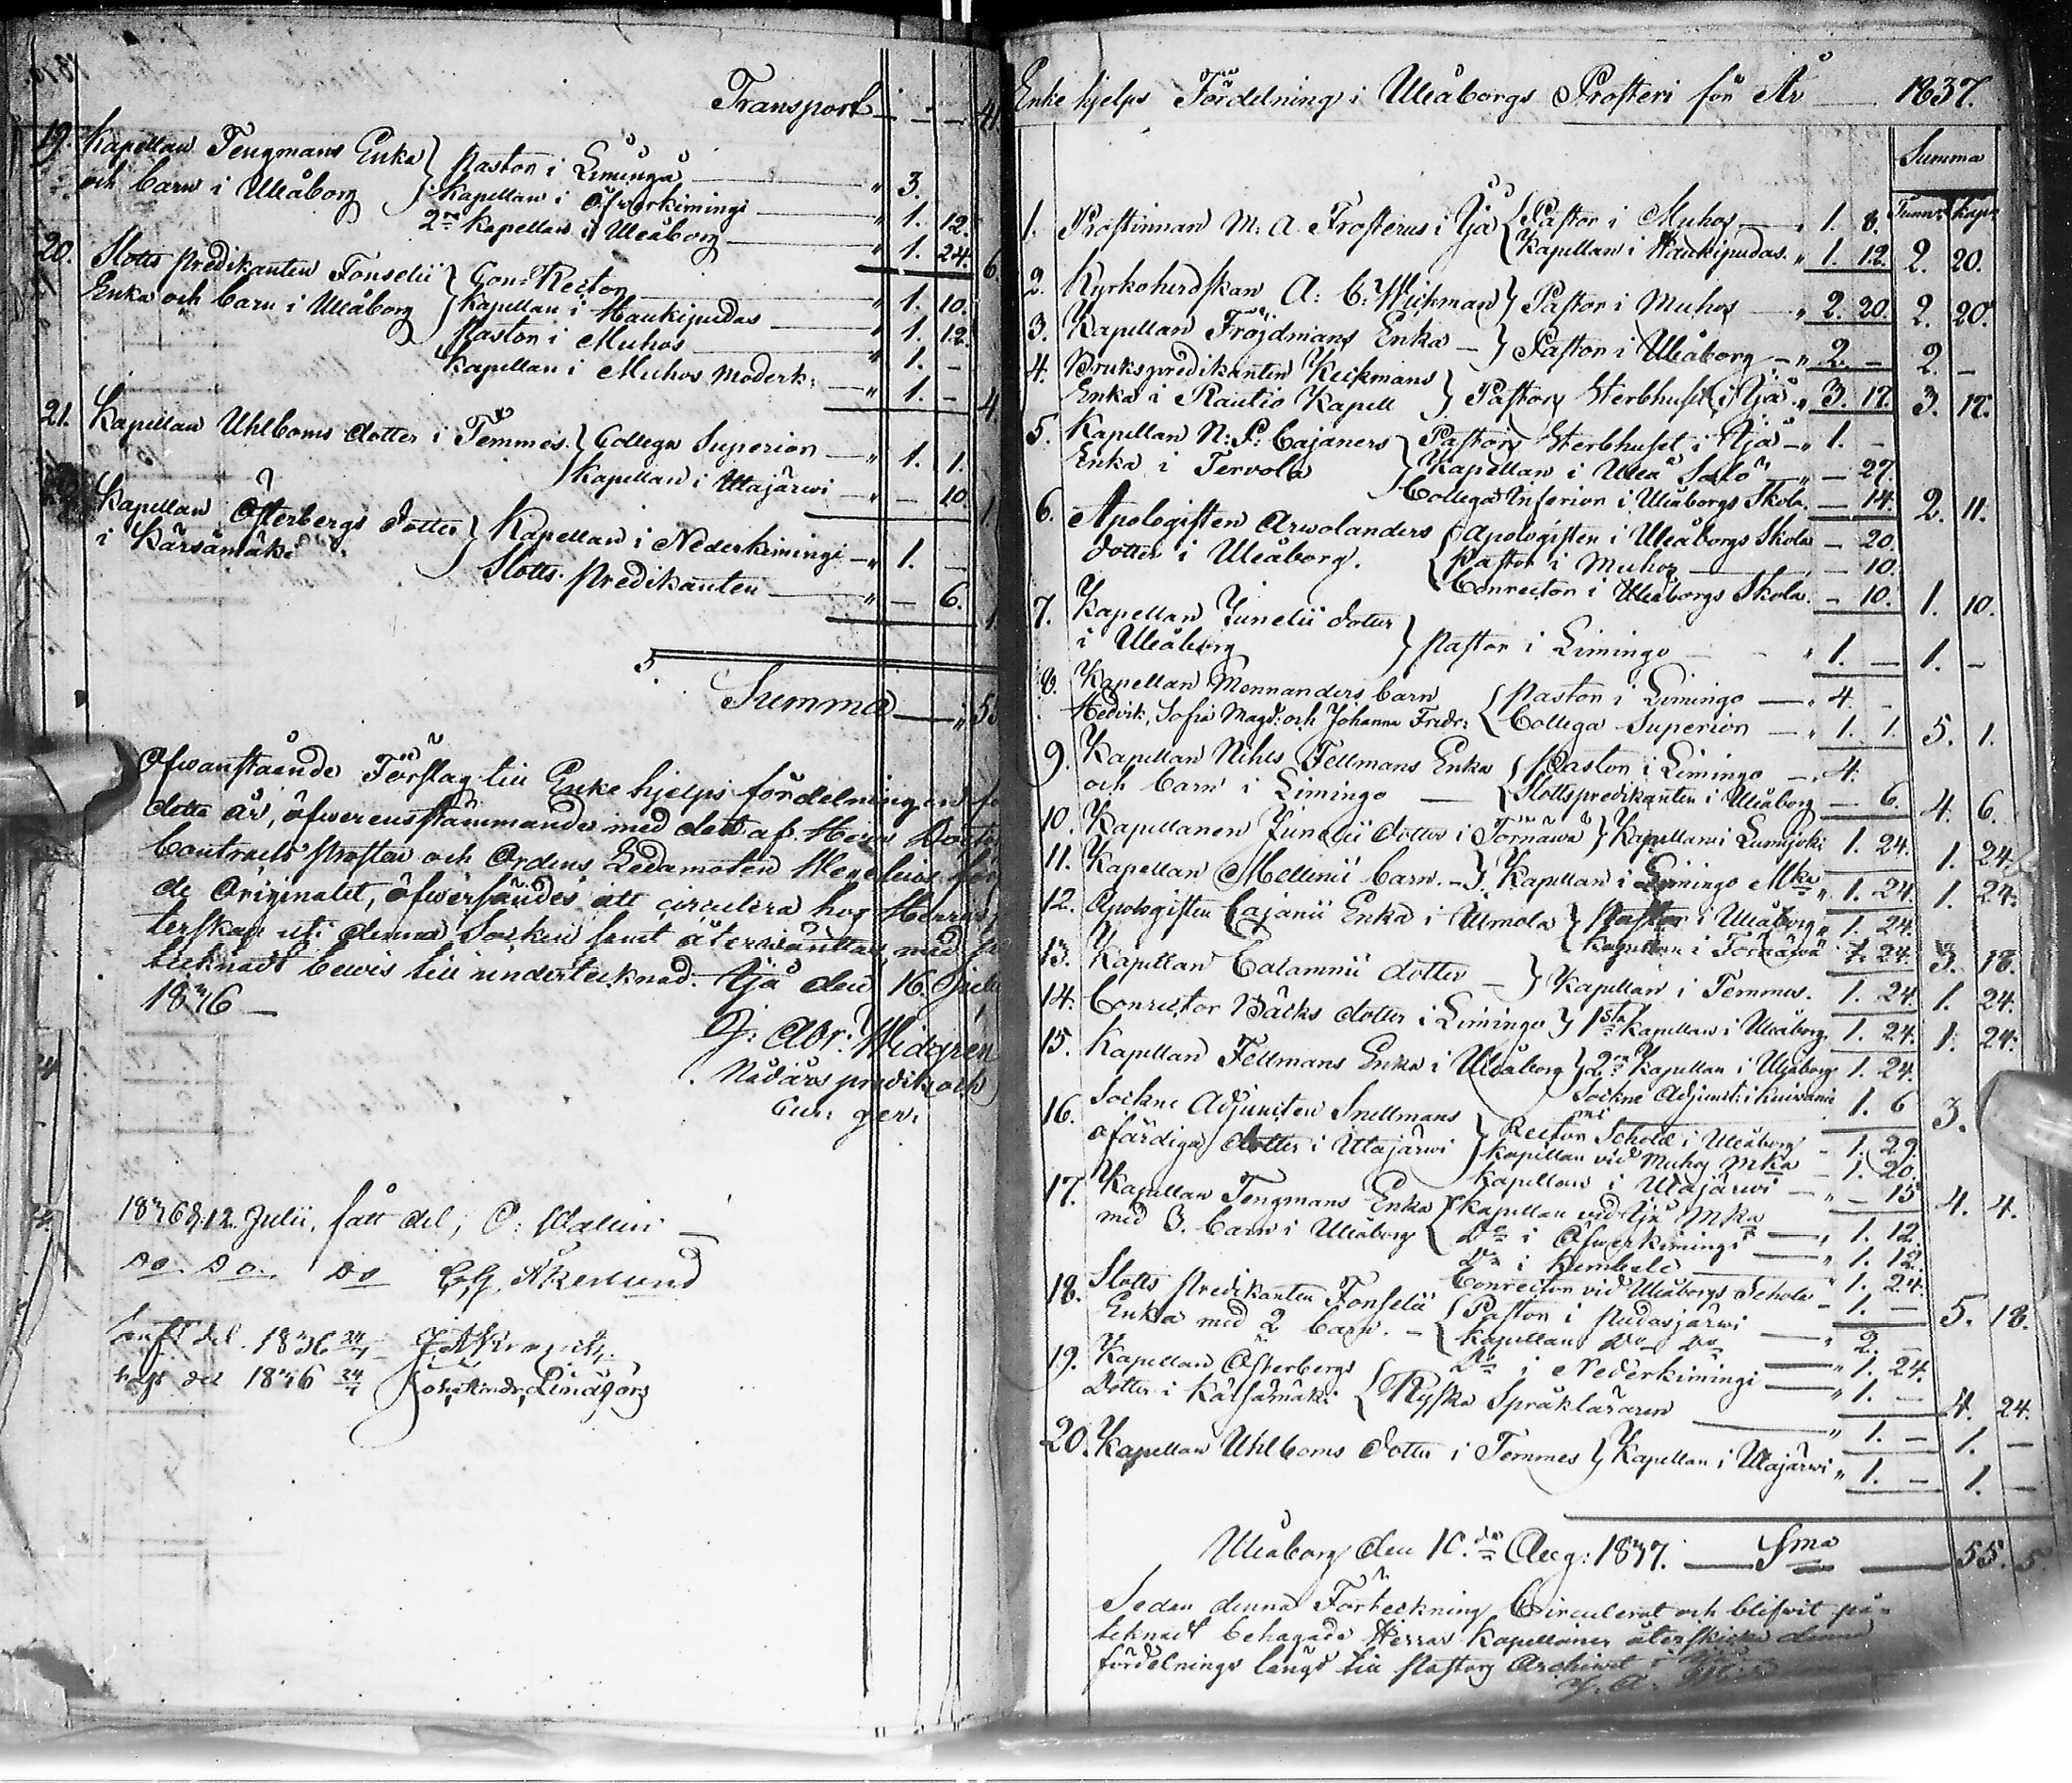 Transport
19. Kapellan Tengmans Enka } Pastor i Limingå " 3.
och barn i Uleåborg } Kapellan i Öfverkimingi " 1. 12.
2re Kapellan i Uleåborg " 1. 24. 6
20. Slotts Predikanten Fonselii } Con-Rector " 1. 10.
Enka och barn i Uleåborg } Kapellan i Haukipudas " 1. 12.
Pastor i Muhos " 1. –
Kapellan i Muhos Moderk: " 1. – 4
21. Kapellan Uhlboms dotter i Temmes. } Collega Superior " 1. 1.
Kapellan i Utajärwi " – 10. 1
Kapellan Österbergs dotter } Kapellan i Nederkimingi " 1. –
i Kärsämäki } Slotts Predikanten " – 6. 1
Summa " 55
Ofwanstående Förslag till Enke hjelps fördelningen
detta år, öfwerensstämmande med det af Herr
Contracts Prosten och Ordens Ledamoten
de Originalet, öfwersändes att circulera hos
terskap uti denna Socken samt återwänttas med
tecknadt bewis till undertecknad. Ijå den 16. Julii
1836 –
J: Abr: Widgren
Nådårs predik: och
Cur: ger:
1836 d. 12. Julii, fått del, C: Wallin
Do Do Do C. G. Åkerlund
del. 1836 24/7
del 1836 24/7 Lindqvis
Enke hjelps Fördelning i Uleåborgs Prosteri för År 1837.
Summa
Tunnr kapp
1. Prostinnan M: A. Frosterus i Ijå { Pastor i Muhos " 1. 8.
Kapellan i Haukipudas. " 1. 12. 2. 20.
2. Kyrkoherdskan A: C: Wichman } Pastor i Muhos " 2. 20. 2. 20.
3. Kapellan Fröjdmans Enka – } Pastor i Uleåborg – " 2. – 2. –
4. Brukspredikanten Keckmans
Enka i Rautio Kapell } Pastors Sterbhuset i Ijå " 3. 17. 3. 17.
5. Kapellan N: P: Cajaners } Pastors Sterbhuset i Ijå – " 1. –
Enka i Tervola } Kapellan i Uleå Salo " – 27.
Collega Inferior i Uleåborgs Skola. – 14. 2. 11.
6. Apologisten Arwolanders { Apologisten i Uleåborgs Skola – 20.
dotter i Uleåborg. { Pastor i Muhos – 10.
Conrector i Uleåborgs Skola. – 10. 1. 10.
7. Kapellan Junelii dotter
i Uleåborg } Pastor i Limingo " 1. – 1. –
8. Kapellan Mennanders barn { Pastor i Limingo " 4. –
Hedvik, Sofia Magd: och Johanna Fredr: { Collega Superior " 1. 1. 5. 1.
9. Kapellan Nihls Fellmans Enka { Pastor i Limingo – " 4.
och barn i Limingo { Slottspredikanten i Uleåborg – 6. 4. 6.
10. Kapellanen Junelii dotter i Törnäwä } Kapellan i Lumijoki 1. 24. 1. 24
11. Kapellan Mellinii barn. – } Kapellan i Limingo Mka " 1. 24. 1. 24.
12. Apologisten Cajanii Enka i Uimola } Pastor i Uleåborg " 1. 24.
Kapellan i Törnäwä 1. 24. 3. 18.
13. Kapellan Calamnii dotter – } Kapellan i Temmes. 1. 24. 1. 24.
14. Conrector Bäcks dotter i Limingo } 1sta Kapellan i Uleåborg 1. 24. 1. 24.
15. Kapellan Fellmans Enka i Uleåborg } 2re Kapellan i Uleåborg 1. 24.
Sockne Adjunct: i Kuivaniemi 1. 6 3.
16. Sockne Adjuncten Snellmans } Rector Scholæ i Uleåborg – 1. 29.
ofärdiga dotter i Utajärwi } Kapellan vid Muhos Mka – 1. 20.
Kapellan i Utajärwi – " – 15 4. 4.
17. Kapellan Tengmans Enka { Kapellan vid Ijå Mka " 1. 12.
med 3. barn i Uleåborg { Do i Öfwerkimingi " 1. 12.
Do i Kembele 1. 24.
Conrector vid Uleåborgs Schola – 1. – 5. 18.
18. Slotts Predikanten Fonselii { Pastor i Pudasjärwi " 2. –
Enka med 2 barn. – { Kapellan Do Do " 1. 24.
Do i Nederkimingi " 1. – 4. 24.
19. Kapellan Österbergs
dotter i Kärsämäki { Ryska Språkläraren " 1. – 1. –
20. Kapellan Uhlboms dotter i Temmes } Kapellan i Utajärwi " 1. – 1. –
Uleåborg den 10.de Aug: 1837. Sma 55. 5
Sedan denna Förteckning Circulerat och blifwit på-
teknadt behagade Herrar Kapellaner återskicka denna
fördelnings längd till Pastors Archivet i